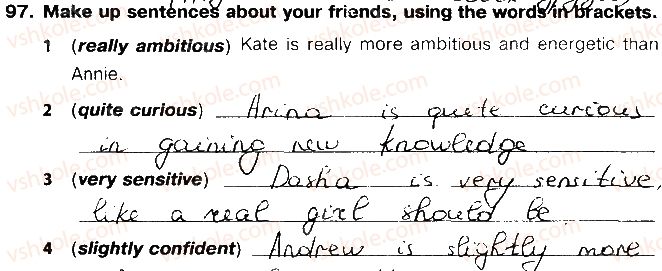 97. Make up sentences about your friends, using the words in brackets.
1 (really ambitious) Kate is really more ambitious and energetic than
Annie.
2 (quite curious) Arina is quite curious
in gaining new knowledge
3 (very sensitive) Dasha is very sensitive,
like a real girl should be
4 (slightly confident) Andrew is slightly more